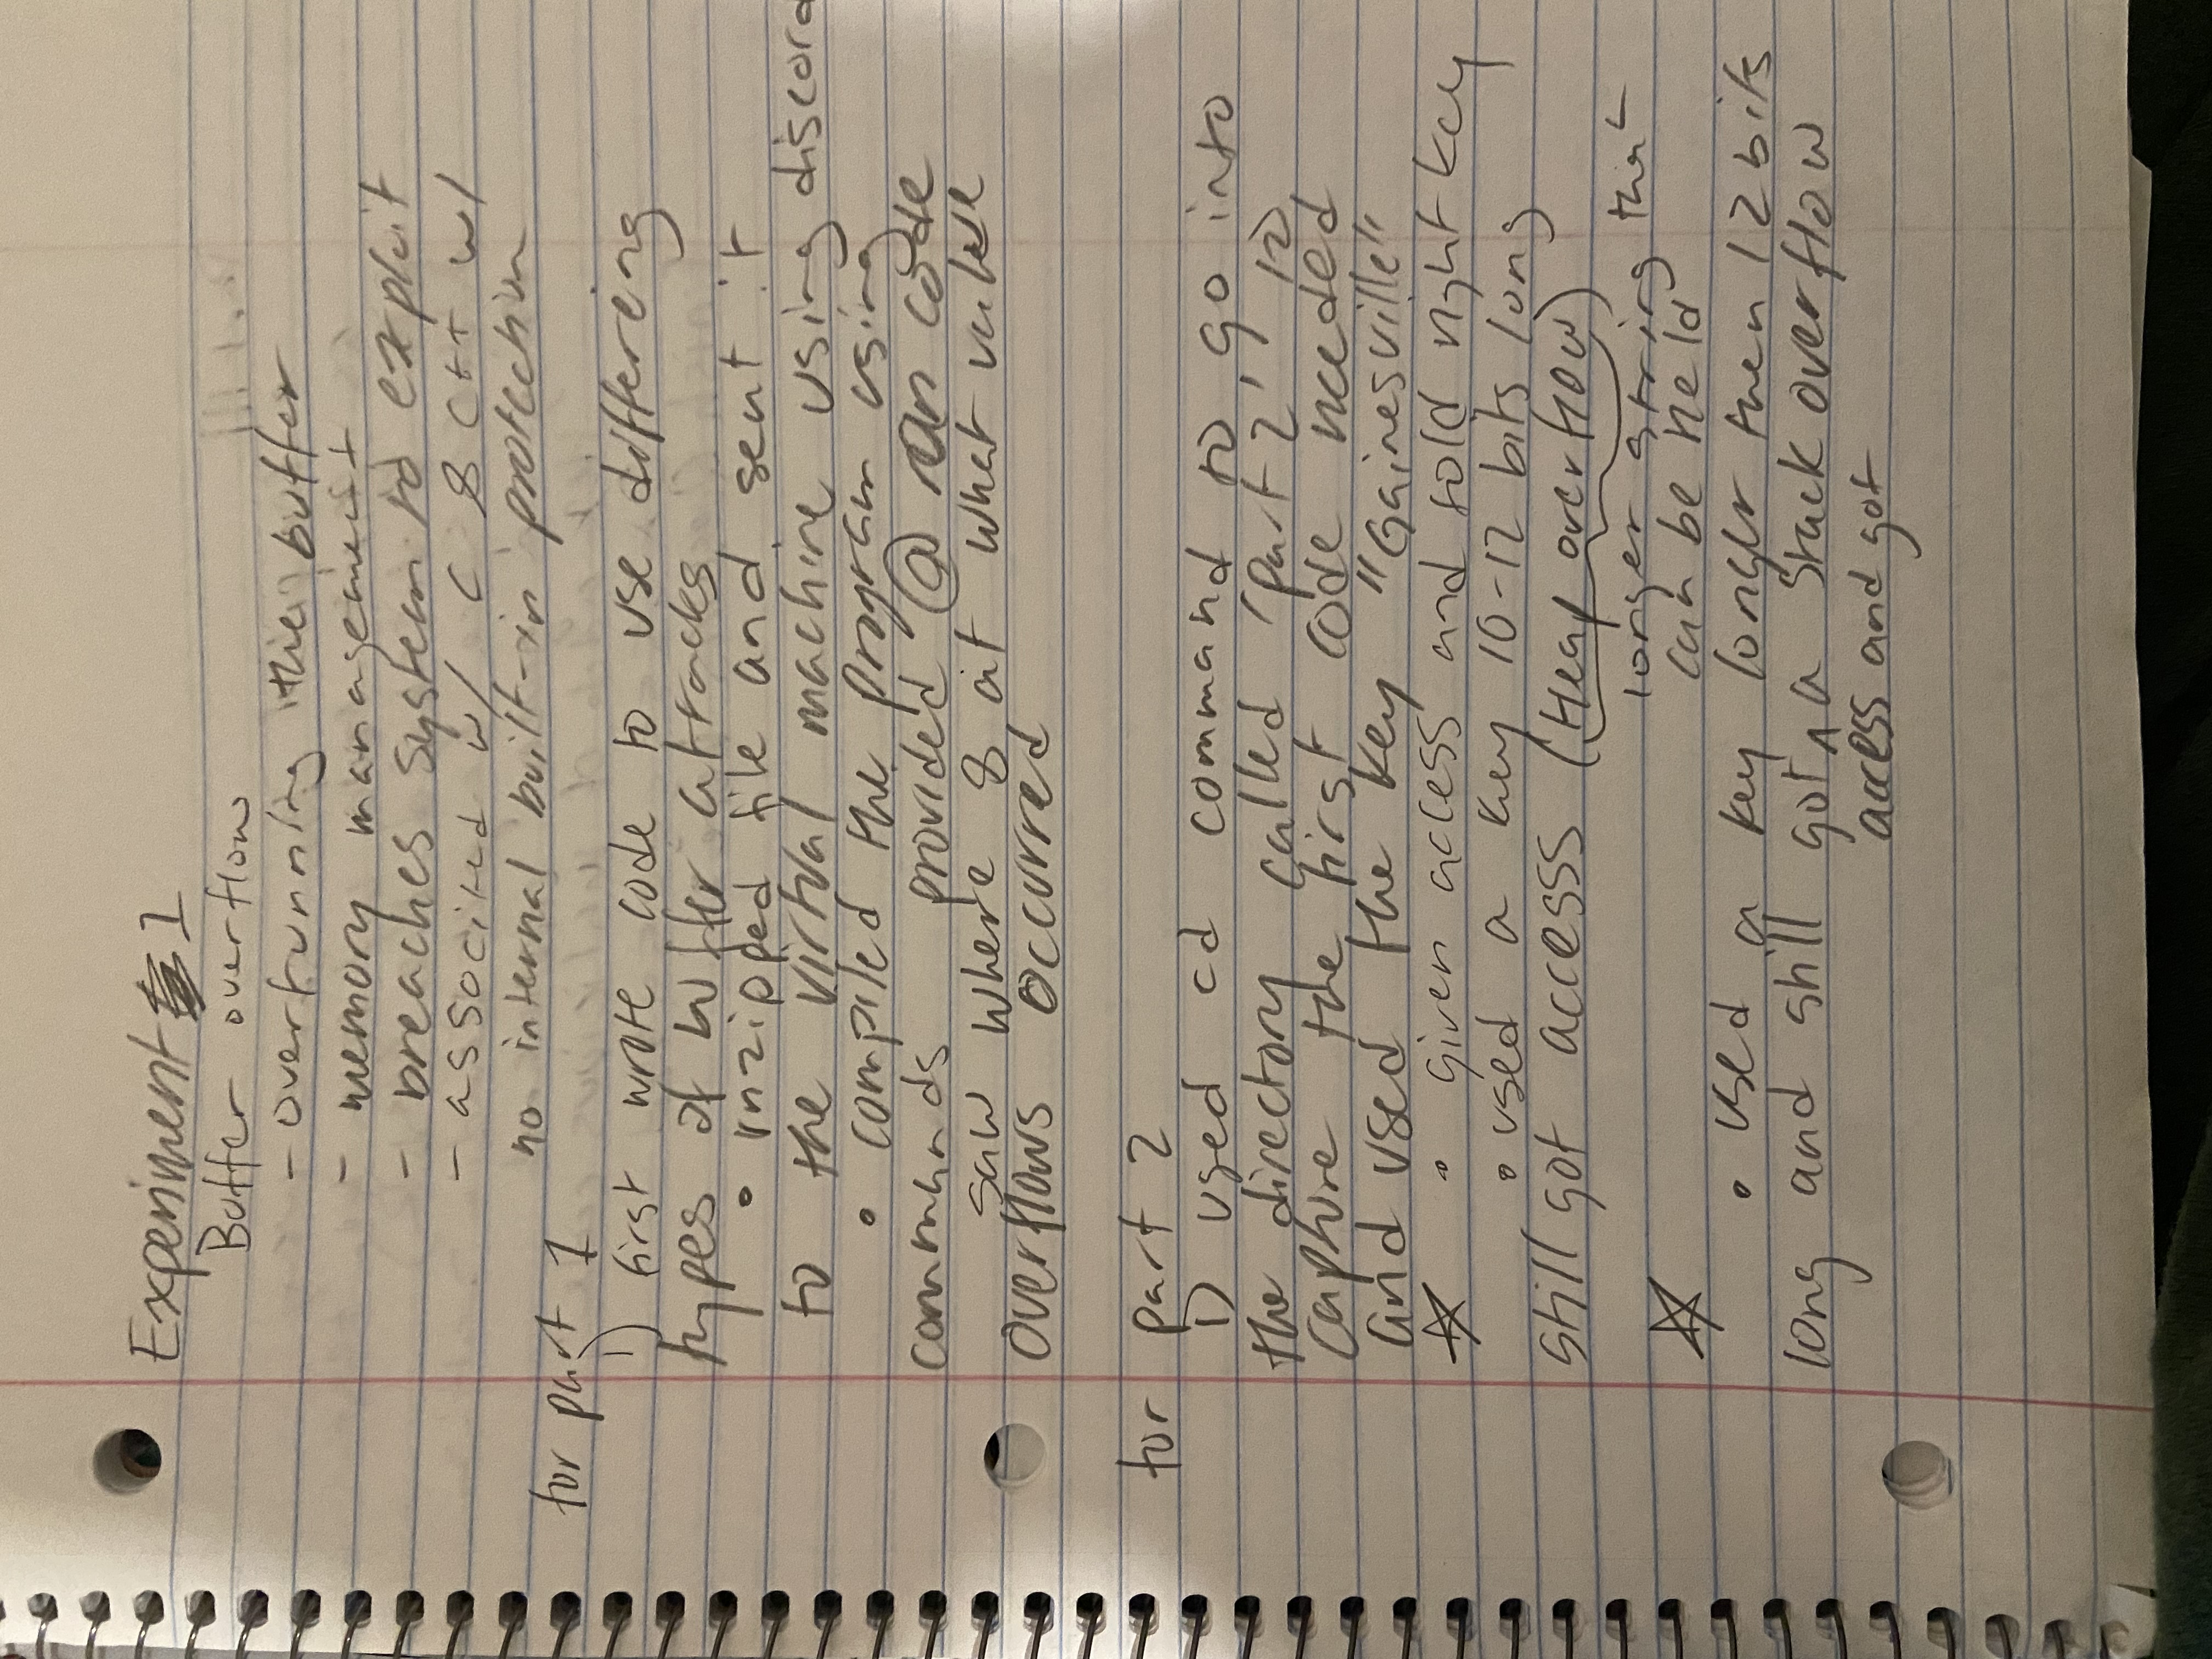 Experiment 1
Buffer overflow
- overrunning the buffer
- memory management
- breaches system to exploit
- associted w/ C & C++ w/
no internal built-in protection
for part 1
1) first wrote code to use differing
types of buffer attacks
• unzipped file and sent it
to the virtual machine using discord
• compiled the program using
commands provided @ ran code
saw where & at what value
overflows occurred
for part 2
1) used cd command to go into
the directory called 'part 2' to
capture the first code needed
and used the key "Gainesville"
☆ • given access and told right key
• used a key 10-12 bits long
still got accesss (Heap overflow)
longer string that
can be held
☆
• used a key longer then 12 bits
long and still got ^ a stack overflow
access and got